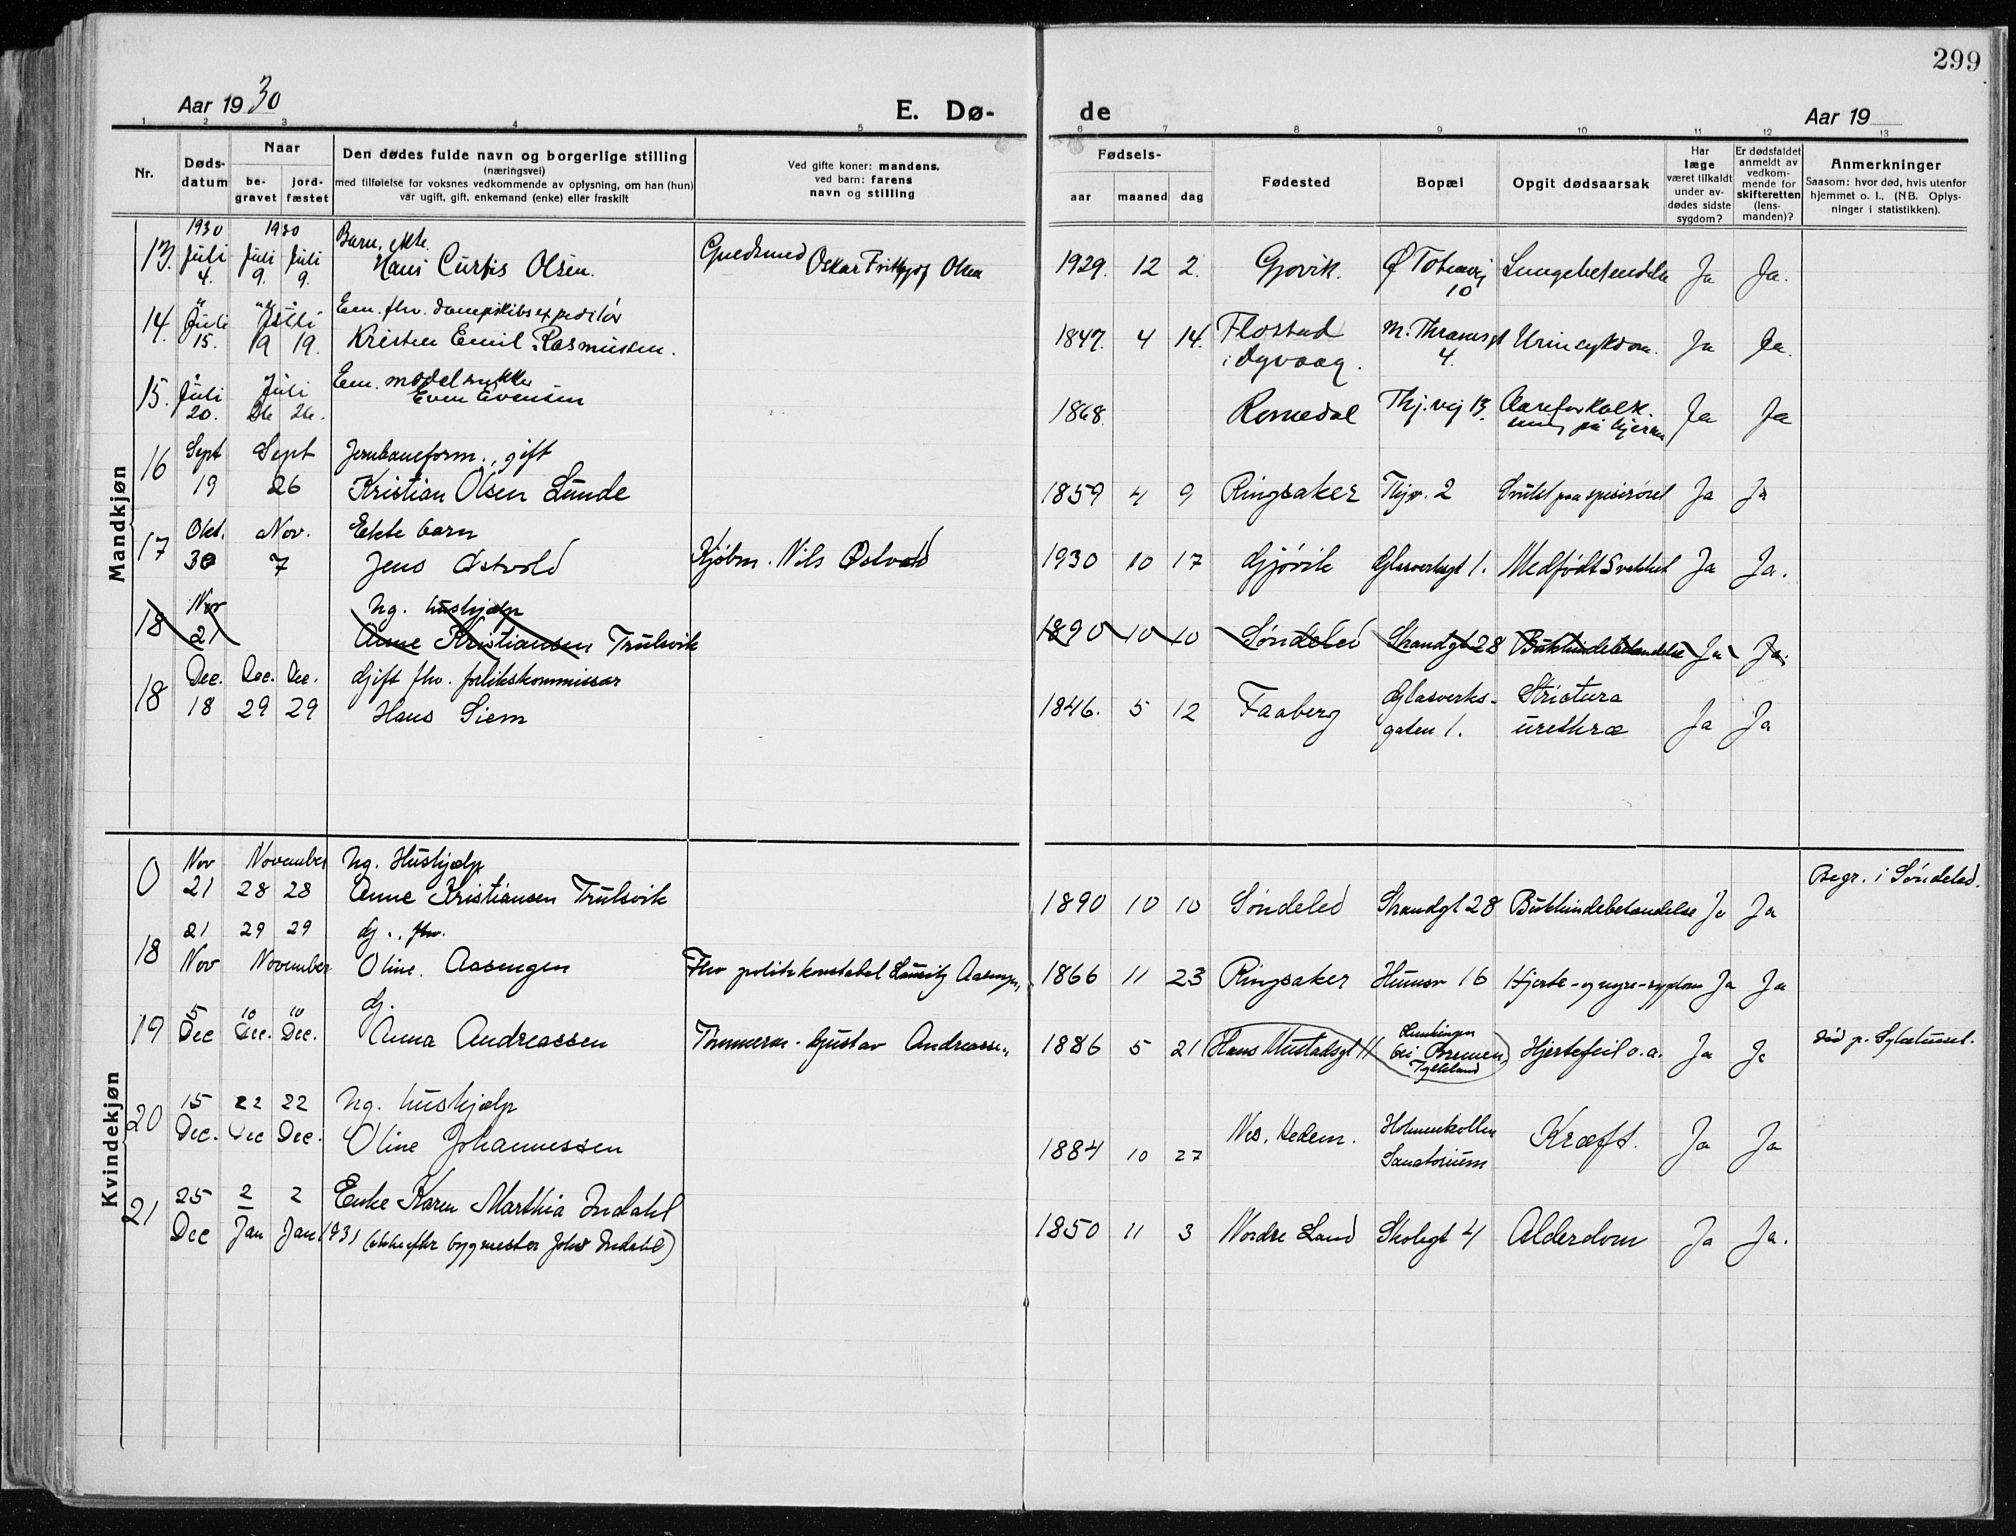 299
Aar 1930
E. Dø-
de
Aar 19
1 2 3 4 5 6 7 8 9 10 11 12 13
Nr.
Døds-
datum
Naar
be-
gravet
jord-
fæstet
Den dødes fulde navn og borgerlige stilling
(næringsvei)
med tilføielse for voksnes vedkommende av oplysning, om han (hun)
var ugift, gift, enkemand (enke) eller fraskilt
Ved gifte koner: mandens.
ved barn: farens
navn og stilling
Fødsels-
aar
maaned
dag
Fødested
Bopæl
Opgit dødsaarsak
Har
læge
været tilkaldt
under av-
dødes sidste
sygdom?
Er dødsfaldet
anmeldt av
vedkom-
mende for
skifteretten
(lens-
manden)?
Anmerkninger
Saasom: hvor død, hvis utenfor
hjemmet o. l., (NB. Oplys-
ninger i statistikken).
Mandkjøn
1930 1930 Barn, ekte.
13. Juli Juli Juli Hans Curtis Olsen. Oskar Fritjof Olsen 1929. 12 2. Gjøvik. Ø Totenvej Lungebetendelse Ja Ja.
4. 9. 9. 10
Em. fhv. dampskibsexpeditør
14. Juli Juli Kristen Emil Rasmussen. 1847. 4 14. Flostad M. Thranesgt Urinsykdom. Ja Ja.
15. 19 19. i Dyvaag. 4.
Em. modelsnekker
15. Juli Juli Even Evensen 1868. Romedal Thj.vej 13. Aareforkalk- Ja Ja
20. 26 26. ning på hjernen
16 Sept Sept Jernbaneform., gift
19 26 Kristian Olsen Lunde 1859 4 9 Ringsaker Thjv. 2 Svulst paa spiserøret Ja Ja
17 Okt. Nov. Ekte barn
30 7 Jens Østvold Kjøbm. Nils Østvold 1930 10 17 Gjøvik Glasverksgt 1. Medfødt Svakhet Ja Ja.
18 Nov Ug. hushjælp
21 Anne Kristiansen Trulsvik 1890 10 10 Søndeled Strandgt 28 Bukhindebetandelse Ja Ja.
18 Dec. Dec. Dec. Gift fhv. forlikskommissær
18 29 29 Hans Siem 1846. 5 12 Faaberg Glasverks- Strictura Ja Ja
gaten 1. urethræ
Kvindekjøn
0 Nov November Ug. Hushjælp Begr. i Søndeled.
21 28 28 Anne Kristiansen Trulsvik 1890 10 10 Søndeled Strandgt 28 Bukhindebetandelse Ja Ja
21 29 29 Gj.. fhv.
18 Nov November Oline Aasengen Fhv politikonstabel Lauritz Aasengen 1866 11 23 Ringsaker Hunnsv 16 Hjerte- og nyre-sygdom Ja Ja
5 10 10 Gj.
19 Dec Dec. Dec. Anna Andreassen Tømmerm. Gustav Andreassen 1886 5 21 Hans Mustadsgt 11 bei Bremen Tyskland Hjertefeil o.a. Ja Ja død p. Sykehuset.
20 15 22 22 Ug. hushjælp
Dec. Dec Dec. Oline Johannessen 1884 10 27 Nes, Hedem. Holmenkollen Kræft. Ja Ja
Sanatorium
21 25 2 2 Enke Karen Marthia Indahl
Dec Jan Jan 1931 (enke efter bygmester Johs Indahl) 1850 11 3 Nordre Land Skolegt 4 Alderdom Ja Ja.